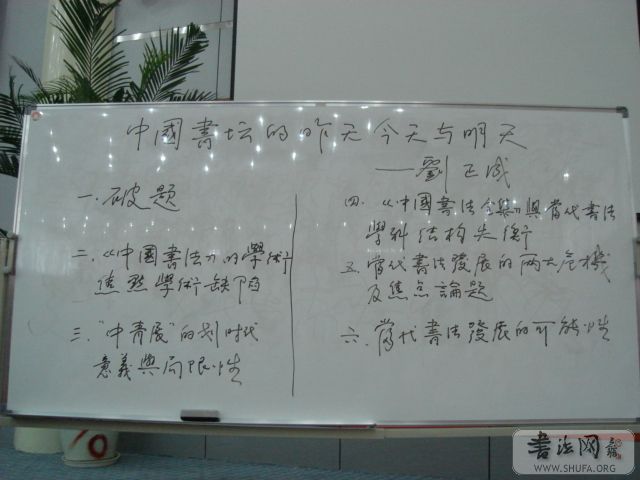 中國書坛的昨天今天与明天
——劉正成
一.破题
二.《中國書法》的學術
焦點學術缺陷
三."中青展"的划时代
意義與局限性
四.《中國書法全集》與當代書法
學科结构失衡
五.當代書法發展的两大危機
及焦点論題
六.當代書法發展的可能性
書法网
WWW.SHUFA.ORG
10